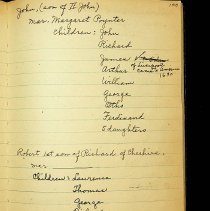 John, (son of Th John)
mar. Margaret Poynter
Children: John
Richard
James
Arthur
William
George
Oths
Ferdinand
5 daughters
Robert 1st son of Richard of Cheshire,
mar.
Children: Laurence
Thomas
George